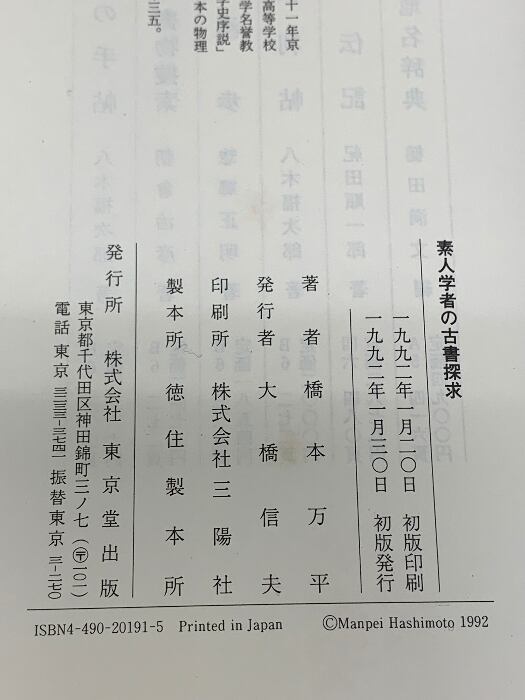 素人学者の古書探求
一九九二年一月二〇日 初版印刷
一九九二年一月三〇日 初版発行
著者 橋本万平
発行者 大橋信夫
印刷所 株式会社三陽社
製本所 徳住製本所
発行所 株式会社 東京堂出版
東京都千代田区神田錦町三ノ七(〒一〇一)
電話 東京 三二三三-三七四一 振替東京 三-二七〇
ISBN4-490-20191-5 Printed in Japan ©Manpei Hashimoto 1992
十一年京
高等学校
学名誉教
子史序説」
本の物理
三五。